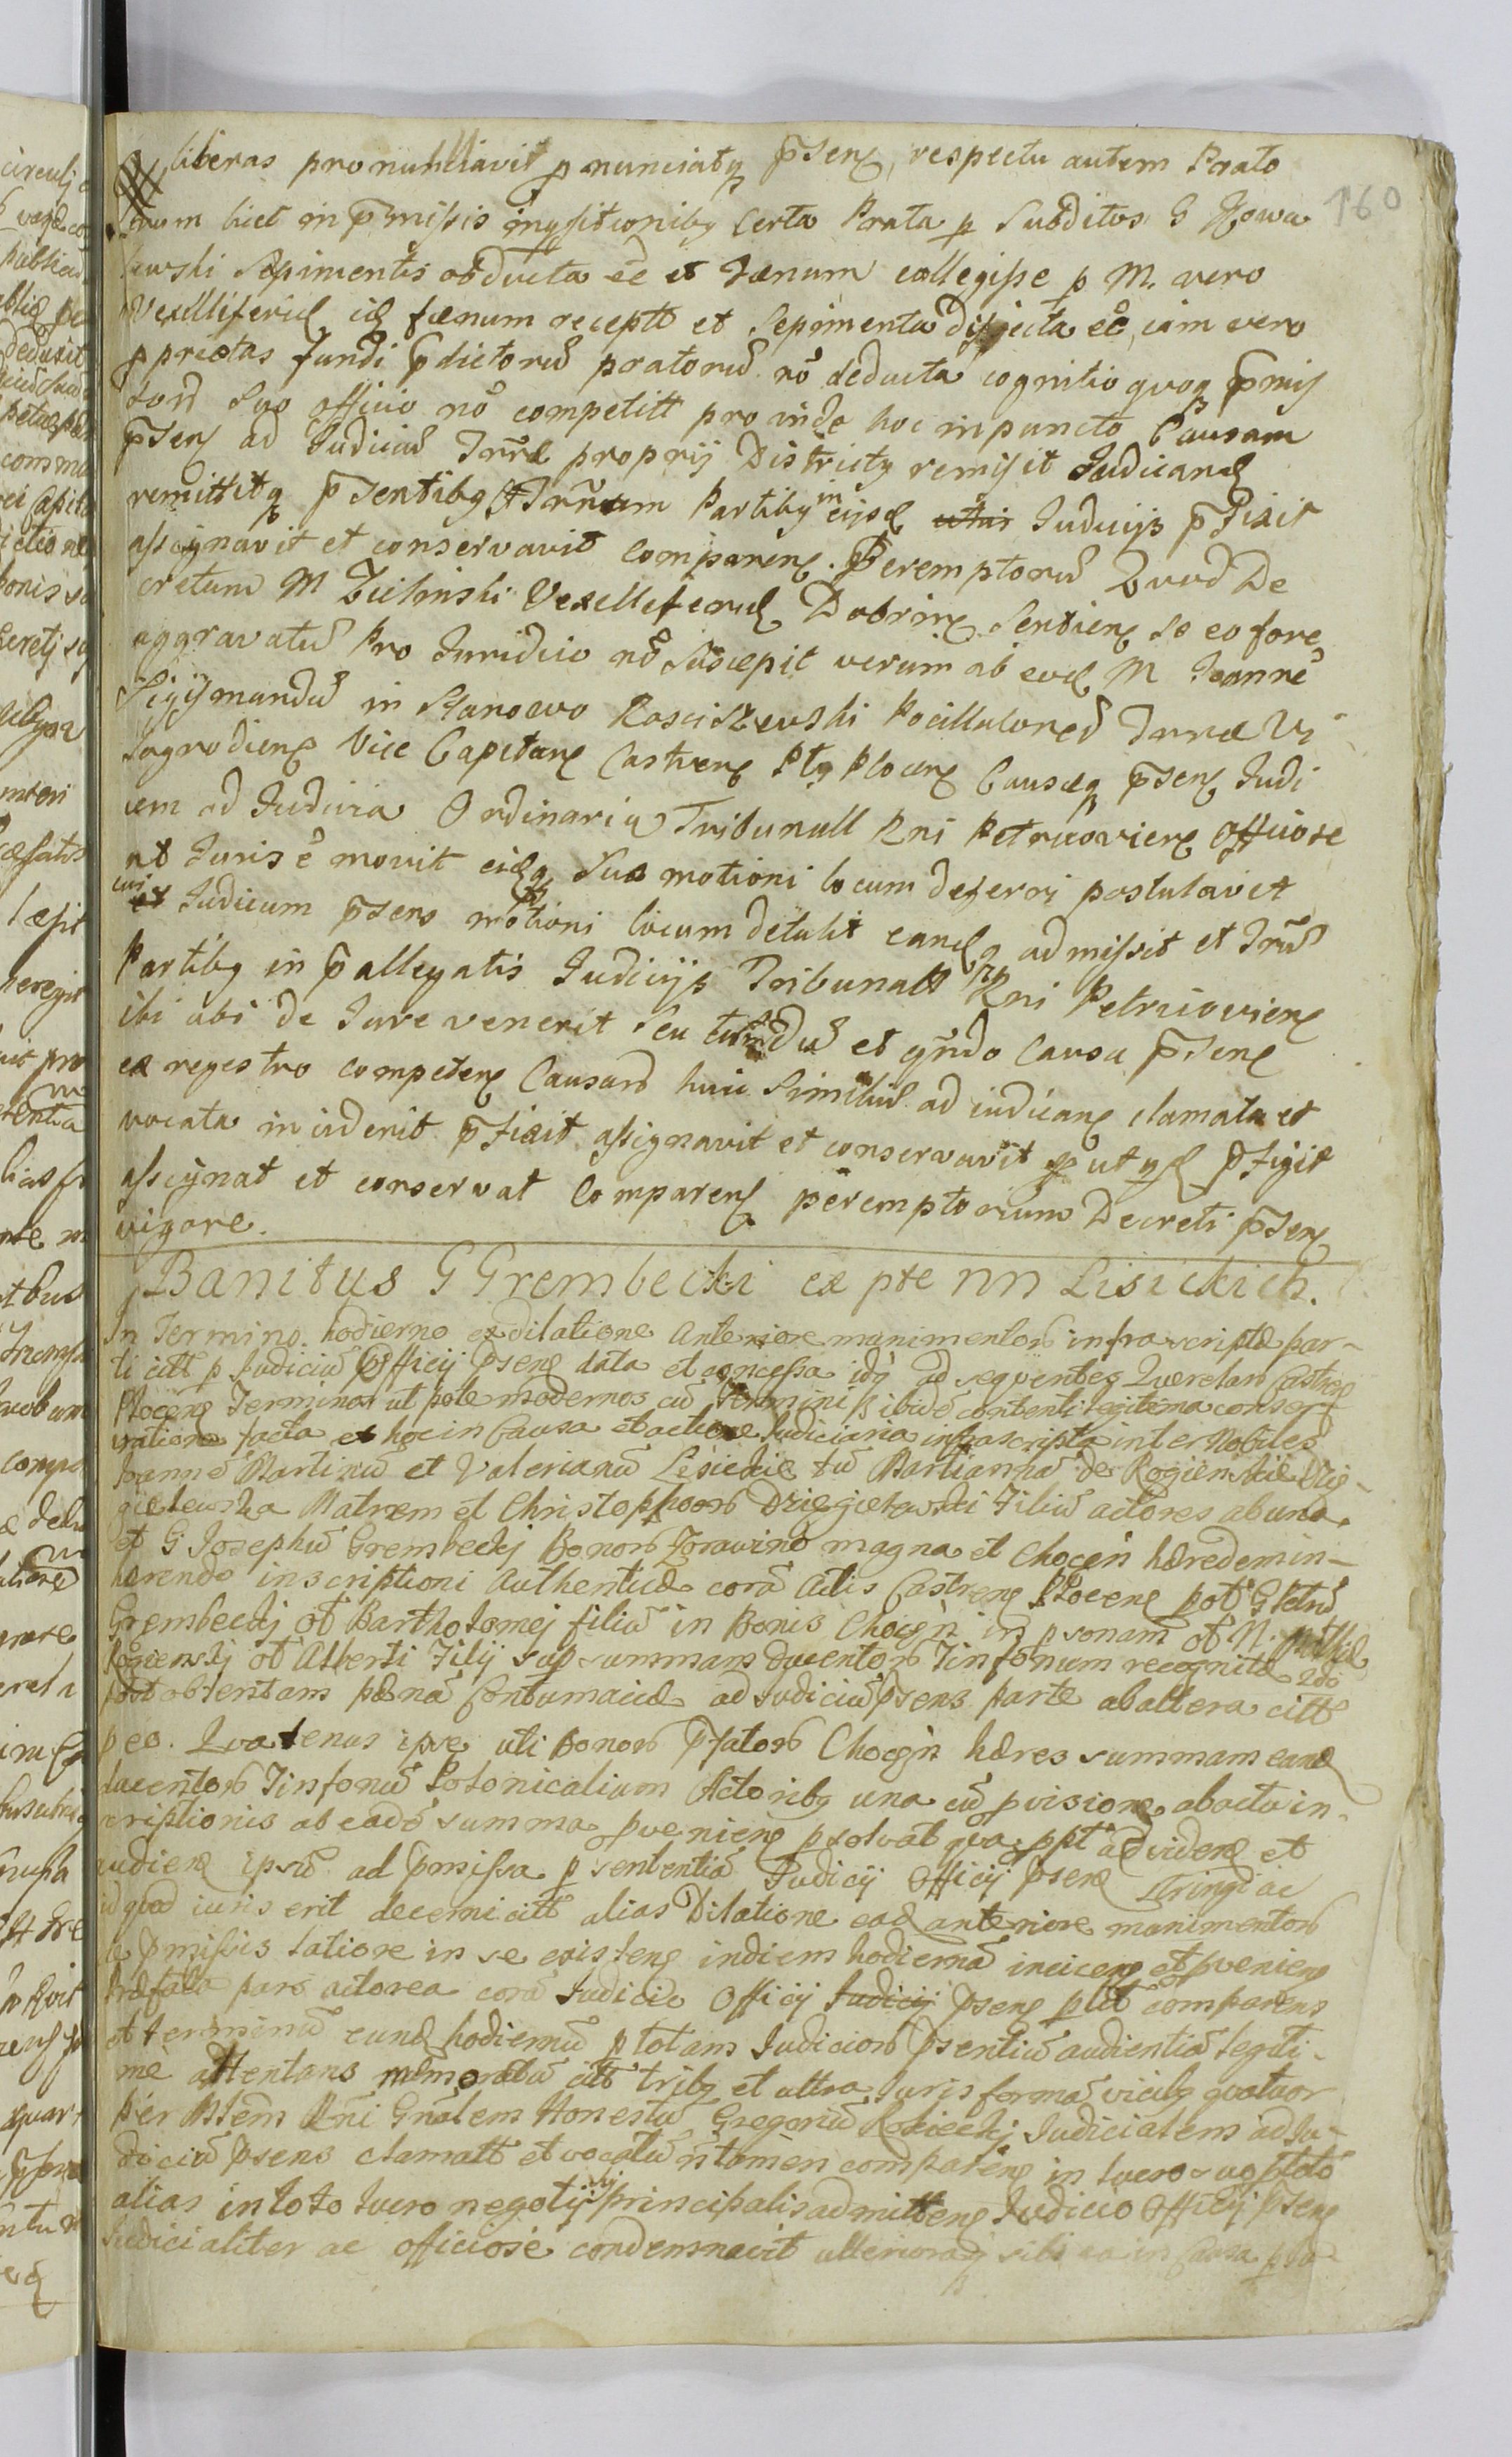 160
liberas pronuntiavit pnunciatq p̄sen, respectu autem Prato
rum licet in p̄missis inqsitionibq certa Prata p Subditos G Kowa
lewski Sepimentis obducta eē et Fænum collegisse p M. vero
Vexilliferū id fænum recepts et Sepimenta disjecta eē, iam vero
pprietas fundi p̄dictorū pratorū nō deducta cognitio quoq p̄mis
sorū Suo officio nō competit proinde hoc in puncto Causam
p̄sen ad Judiciū Trrē proprij Districtq remisit Judicand
remittitq p̄sentibq et Trnum Partibq in eisd Judicijs p̄fixit
assignavit et conservavit Comparen. Peremptoriū Quod De
cretum M Zielinski Vexilliferū Dobrin Sentien se eo fore
aggravatū Pro Juridico nō Suscepit verum ab eod M Joannē
Sigismundū in Stanowo Kosciszewski Pocillatorē Terræ Wi
sogrodien Vice Capitan Castren Ptq Plocen Causæq p̄sen Judi
cem ad Judicia Ordinaria Tribunall Rni Petricovien officiose
ut Juris ē movit eidq Suæ motioni locum deferri postulavit
cui Judicium p̄sens motioni locum detulit eandq admissit et Trnū
Partibq in p̄allegatis Judicijs Tribunall Rni Petricovien
ibi ubi de Jure venerit Seu et qndo Causa p̄sens
ex regestro competen Causarū huic Similiū ad iudican clamata et
vocata inciderit p̄fixit assignavit et conservavit ut qd p̄figit
assignat et conservat Comparen peremptorium Decreti p̄sen
vigore.
Banitus G Grembecki ex pte nn Lisickich.
In Termino hodierno ex dilatione Anteriore munimentorū infrascriptæ par-
ti citt p Judiciū Officij p̄sens data et concessa idq ad sequentes Querelarū Castren
Plocens Terminos ut pote modernos cū Terminis ibidē contenti legitima conser
vatione facta et hoc in Causa et actione Judiciaria infrascripta inter Nobiles
Joannē Martinū et Valerianū Lesickie tū Mariannā de Rogienskie Dzie-
gielewska Matrem et Christophorū Dziegielewski Filiū actores ab una
et G Josephū Grembecki Bonorū Zorawino magna et Chocen hæredem in-
hærendo inscriptioni Authenticæ corā Actis Castren Plocens pot G Petrū
Grembecki ol Bartholomej filiū in Bonis Chocen in psonam ol N. Matthiæ
Rogienski ol Alberti Filij sup summam ducentorū Tinfonum recognitæ Ndo
post obtentam pænā Contumaciæ ad Judiciū p̄sens parte ab altera citt
peo. Quatenus ipse uti Bonorū p̄fatorū Chocen hæres summam eand
ducentorū Tinfonū Polonicalium Actoribq una cū pvisione ab acto in-
scriptionis ab eadē summa pvenien psolvat qua ppt ad viden et
audien ipsū ad p̄missa p sententiā Judicij Officij p̄sens stringi ac
id quod iuris erit decerni citt alias Dilatione ead anteriore munimentorū
de p̄missis latiore in se existens in diem hodiernā inciden et pvenien
Præfata pars actorea corā Judicio Officij Judicij p̄sens plit comparens
et terminū eund hodiernū p totam Judiciorū p̄sentiū audientiā legiti-
me attentans memoratū citt tribq et ultra Juris formā vicibq quatuor
per Mstem Rni Gnalem Honestū Gregoriū Rosiecki Judicialem ad Ju-
diciū p̄sens clamatt et vocatū ntamen comparen in lucro suo ptitō
alias in toto lucro negotij sui principalis admitten Judicio Officij p̄sens
Judicialiter ac officiose condemnavit ulterioraq sibi ea in Causa